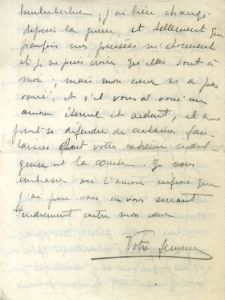 j'ai bien changé
depuis la guerre, et tellement que
parfois mes pensées m'étonnent
et je ne puis croire qu'elles sont à
moi, mais mon cœur n'a pas
varié, et s'il vous a voué un
amour éternel et ardent, il ne
peut se défendre de certaines fai-
blesses dont votre extrême indul-
gence est la cause. Je vous
embrasse avec l'amour infini que
j'ai pour vous en vous serrant
tendrement contre mon cœur
Votre femme